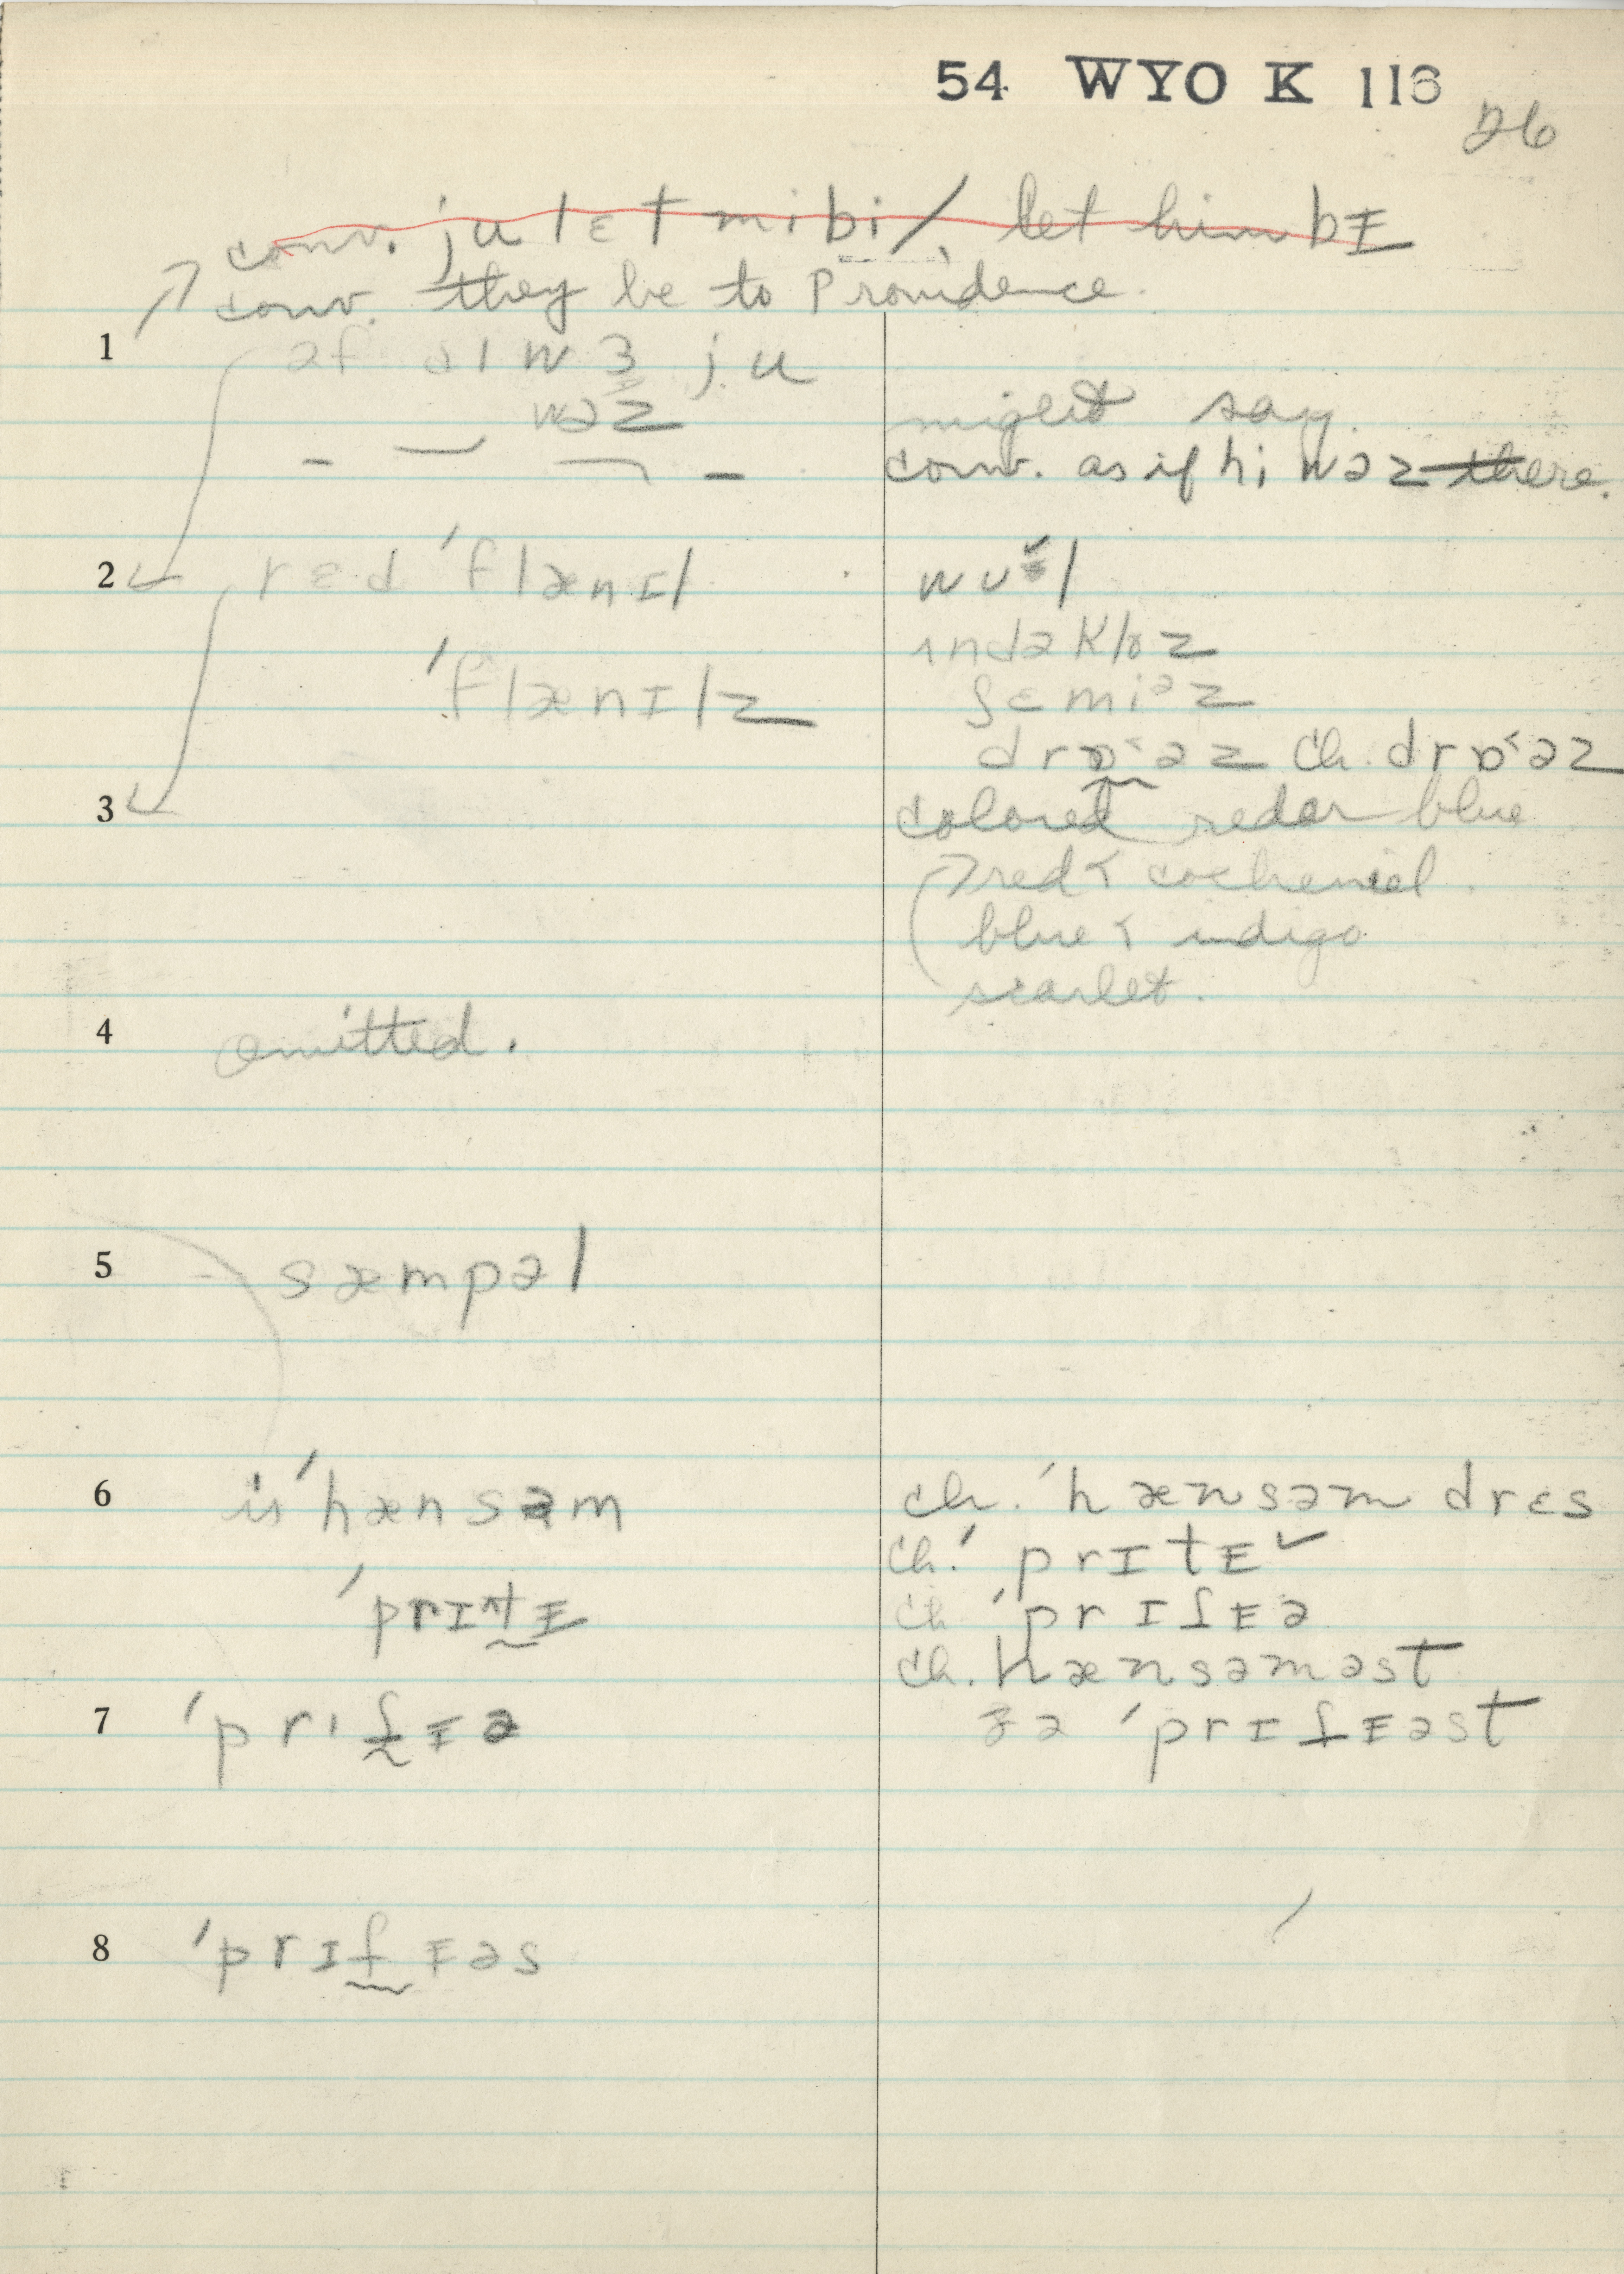 54 WYO K 116
26
conv. ju lɛt mi bi / let him bɪ
conv. they be to Providence.
1 əf aɪ wɜ ju
wəz
might say
conv. as if hi wəz there.
2 rɛd 'flænɪl
wʊl
'flænɪlz
ʌndəkloz
ʃɛmiᵊz
drɒ˂əz ch. drɒ˂əz
3 colored red or blue
red < cochineal
blue < indigo
scarlet.
4 omitted.
5 sæmpəl
6 is 'hænsəm
ch. 'hænsəm drɛs
ch. 'prɪtɪ ✓
'prɪtɪ
ch 'prɪʃɪə
ch. hænsəməst
7 'prɪʃɪə
ðə 'prɪʃɪəst
8 'prɪʃɪəs